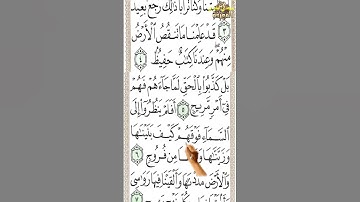 مِتْنَا وَكُنَّا تُرَابًا ذَٰلِكَ رَجْعٌ بَعِيدٌ
٣ قَدْ عَلِمْنَا مَا تَنقُصُ ٱلْأَرْضُ
مِنْهُمْ وَعِندَنَا كِتَٰبٌ حَفِيظٌ ٤
بَلْ كَذَّبُوا۟ بِٱلْحَقِّ لَمَّا جَآءَهُمْ فَهُمْ
فِىٓ أَمْرٍ مَّرِيجٍ ٥ أَفَلَمْ يَنظُرُوٓا۟ إِلَى
ٱلسَّمَآءِ فَوْقَهُمْ كَيْفَ بَنَيْنَٰهَا
وَزَيَّنَّٰهَا مِن فُرُوجٍ ٦
وَٱلْأَرْضَ مَدَدْنَٰهَا وَأَلْقَيْنَا فِيهَا رَوَٰسِىَ
٧